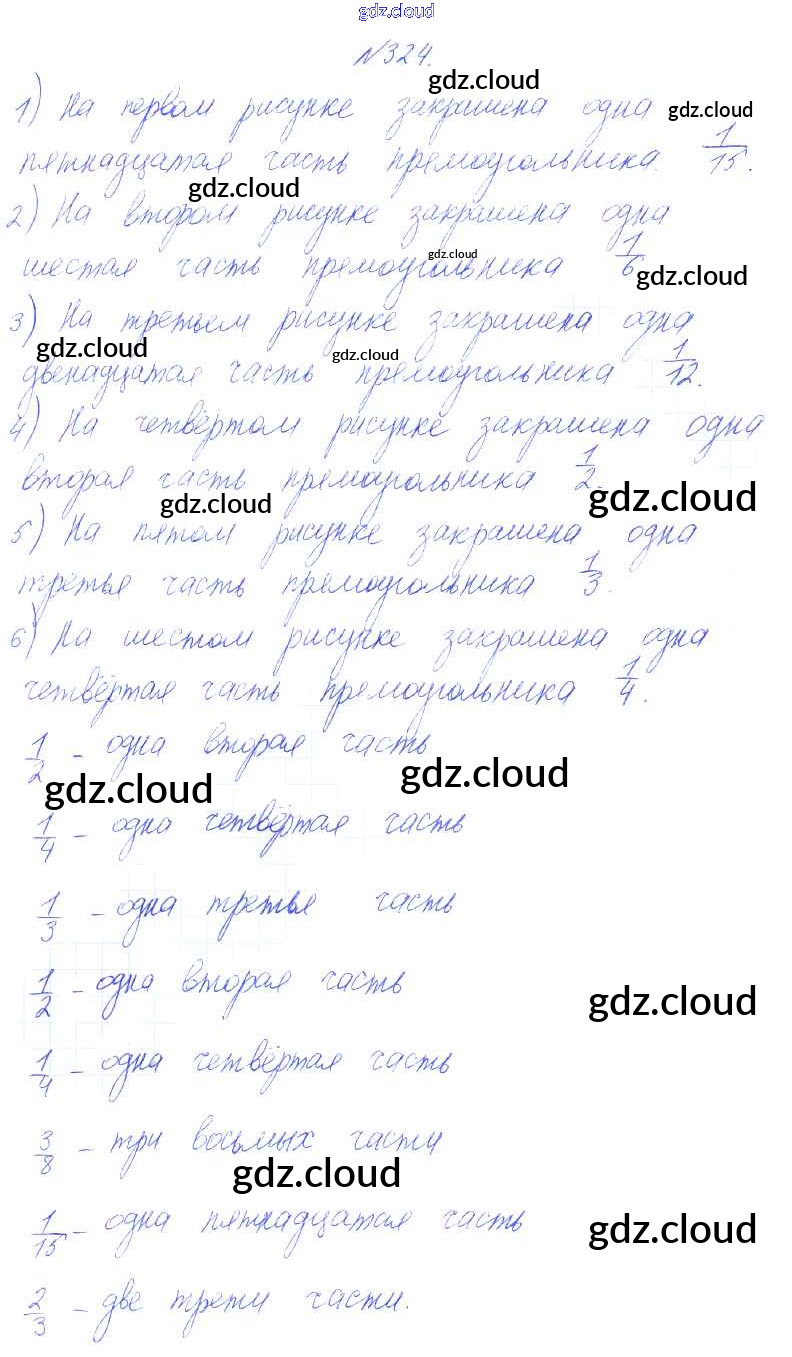 gdz.cloud
№324.
gdz.cloud
1) На первом рисунке закрашена одна gdz.cloud
пятнадцатая часть прямоугольника. 1/15.
gdz.cloud
2) На втором рисунке закрашена одна
gdz.cloud
шестая часть прямоугольника 1/6
gdz.cloud
3) На третьем рисунке закрашена одна
gdz.cloud gdz.cloud
двенадцатая часть прямоугольника 1/12.
4) На четвёртом рисунке закрашена одна
вторая часть прямоугольника 1/2.
gdz.cloud gdz.cloud
5) На пятом рисунке закрашена одна
третья часть прямоугольника 1/3.
6) На шестом рисунке закрашена одна
четвёртая часть прямоугольника 1/4.
1/2 - одна вторая часть
gdz.cloud gdz.cloud
1/4 - одна четвёртая часть
1/3 - одна третья часть
1/2 - одна вторая часть
gdz.cloud
1/4 - одна четвёртая часть
3/8 - три восьмых части
gdz.cloud
1/15 - одна пятнадцатая часть
gdz.cloud
2/3 - две трети части.